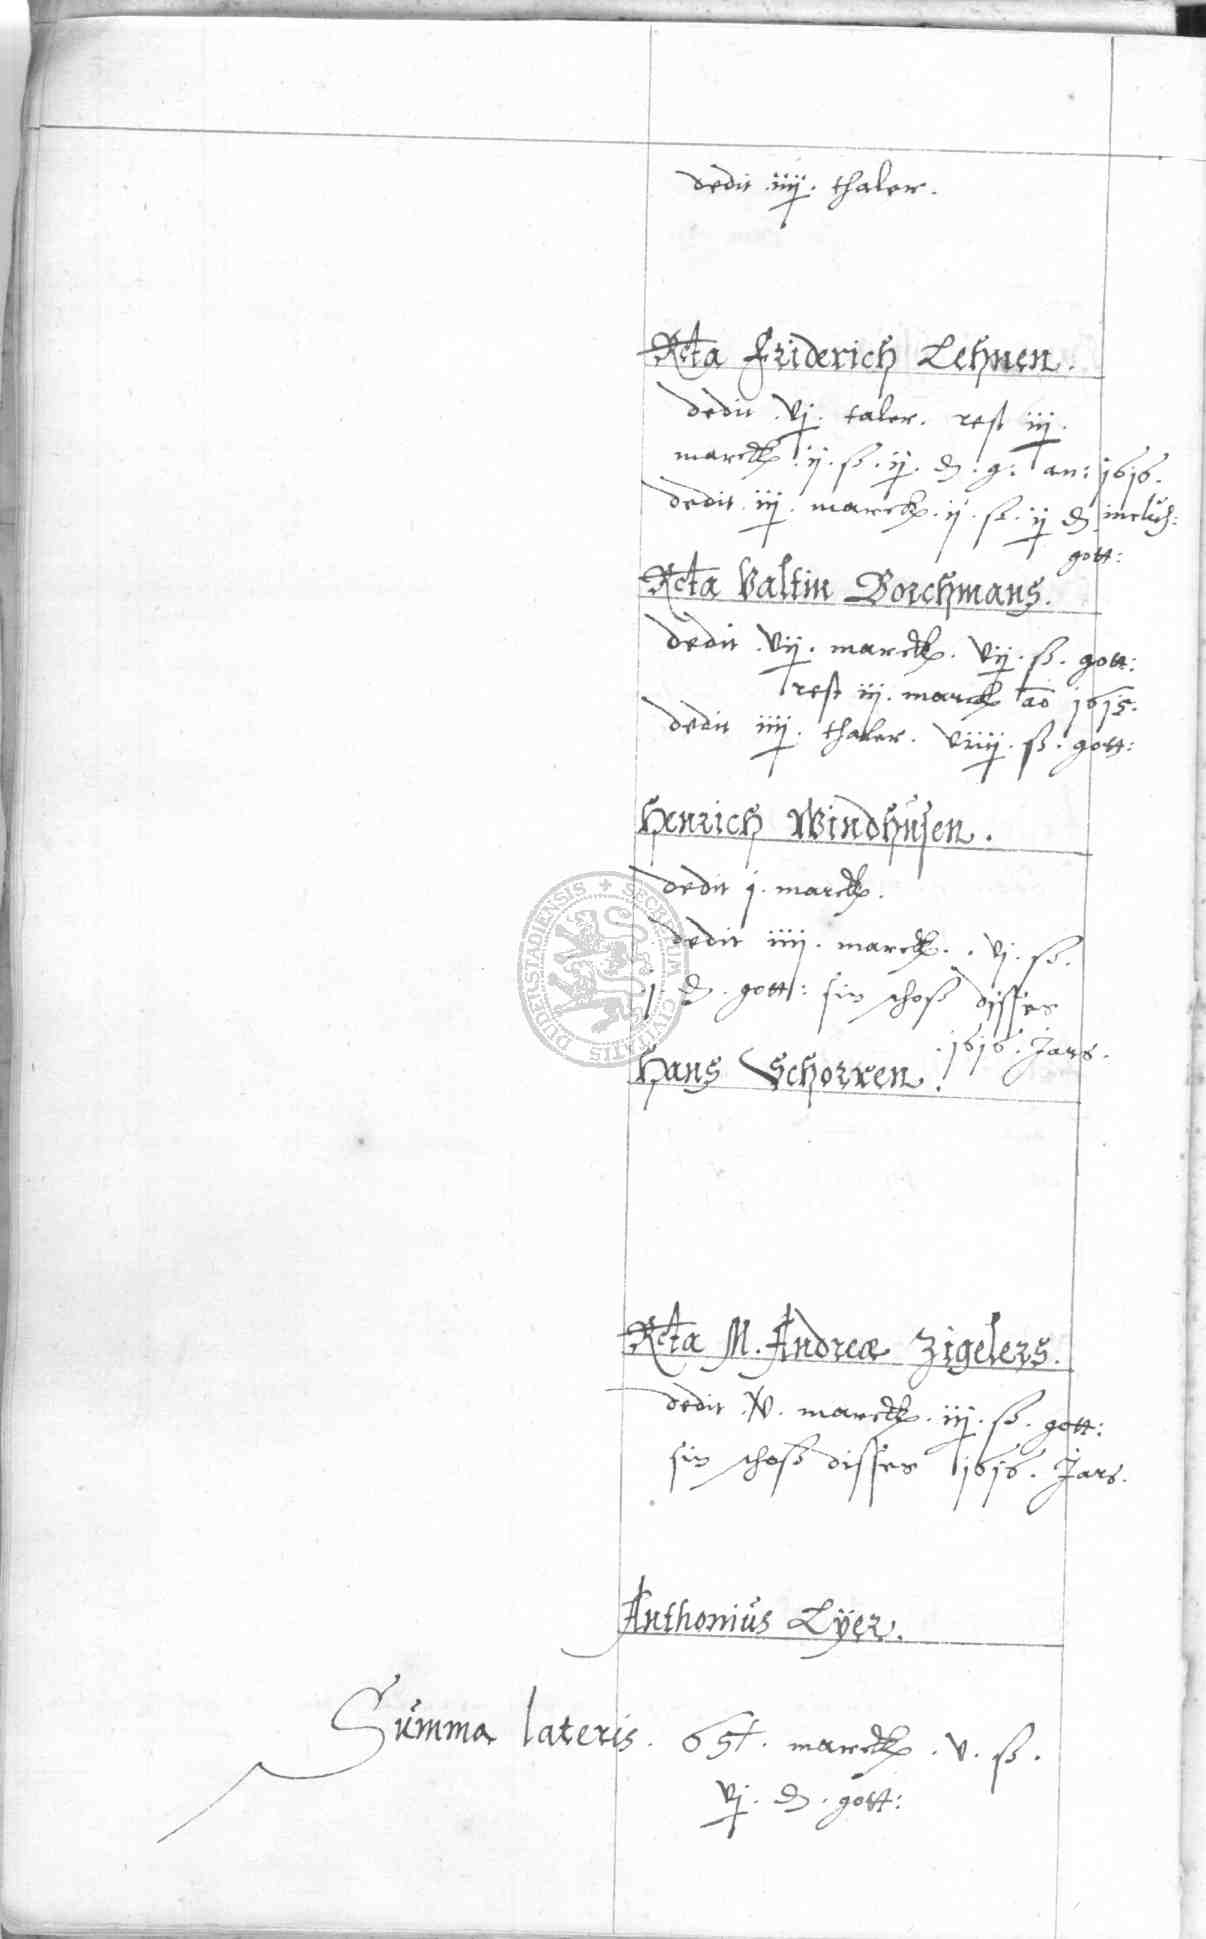 dedit iiij. thaler.
Rcta Friderich Lehnen.
dedit vj. taler. rest iij.
marck. ij. ß. ij. d. g. an: 1616.
dedit. iij. marck. ij. ß. ij d inclus:
gott:
Rcta Valtin Borchmans.
dedit. vij. marck. vij. ß. gott:
rest iij. marck ao 1615.
dedit iiij. thaler. viiij. ß. gott:
Henrich Windhusen.
dedit j. marck.
dedit iiij. marck. vj. ß.
j. d. gott: sin schoß disses
. 1616. Jars.
Hans Schorren.
Rcta M. Andreæ Zigelers.
dedit v. marck. iij. ß. gott:
sin schoß disses 1616. Jars.
Anthonius Lÿer.
Summa lateris. marck. v. ß.
vj. d. gott:
SECRETUM CIVITATIS DUDERSTADIENSIS